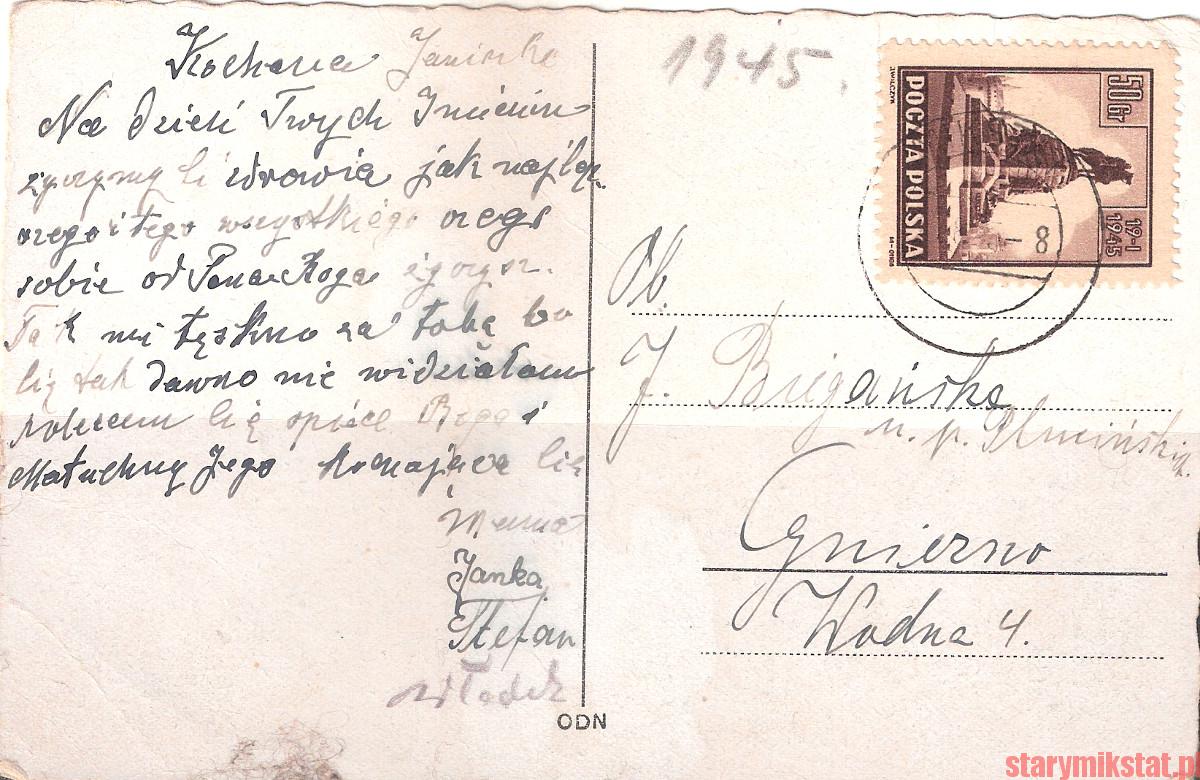 Kochana Janinko
Na dzień Twych Imienin
życzymy Ci zdrowia jak najlep
szego i tego wszystkiego czego
sobie od Pana Boga życzysz.
Tak mi tęskno za tobą bo
Cię tak dawno nie widziałam
polecam Cię opiece Boga i
Matuchny Jego kochająca Cię
Mama
Janka
Stefan
Włodek
ODN
1945.
50 Gr
POCZTA POLSKA
19-I
1945
8
Ob.
J. Biegańska
u. p.
Gniezno
Wodna 4.
starymikstat.pl